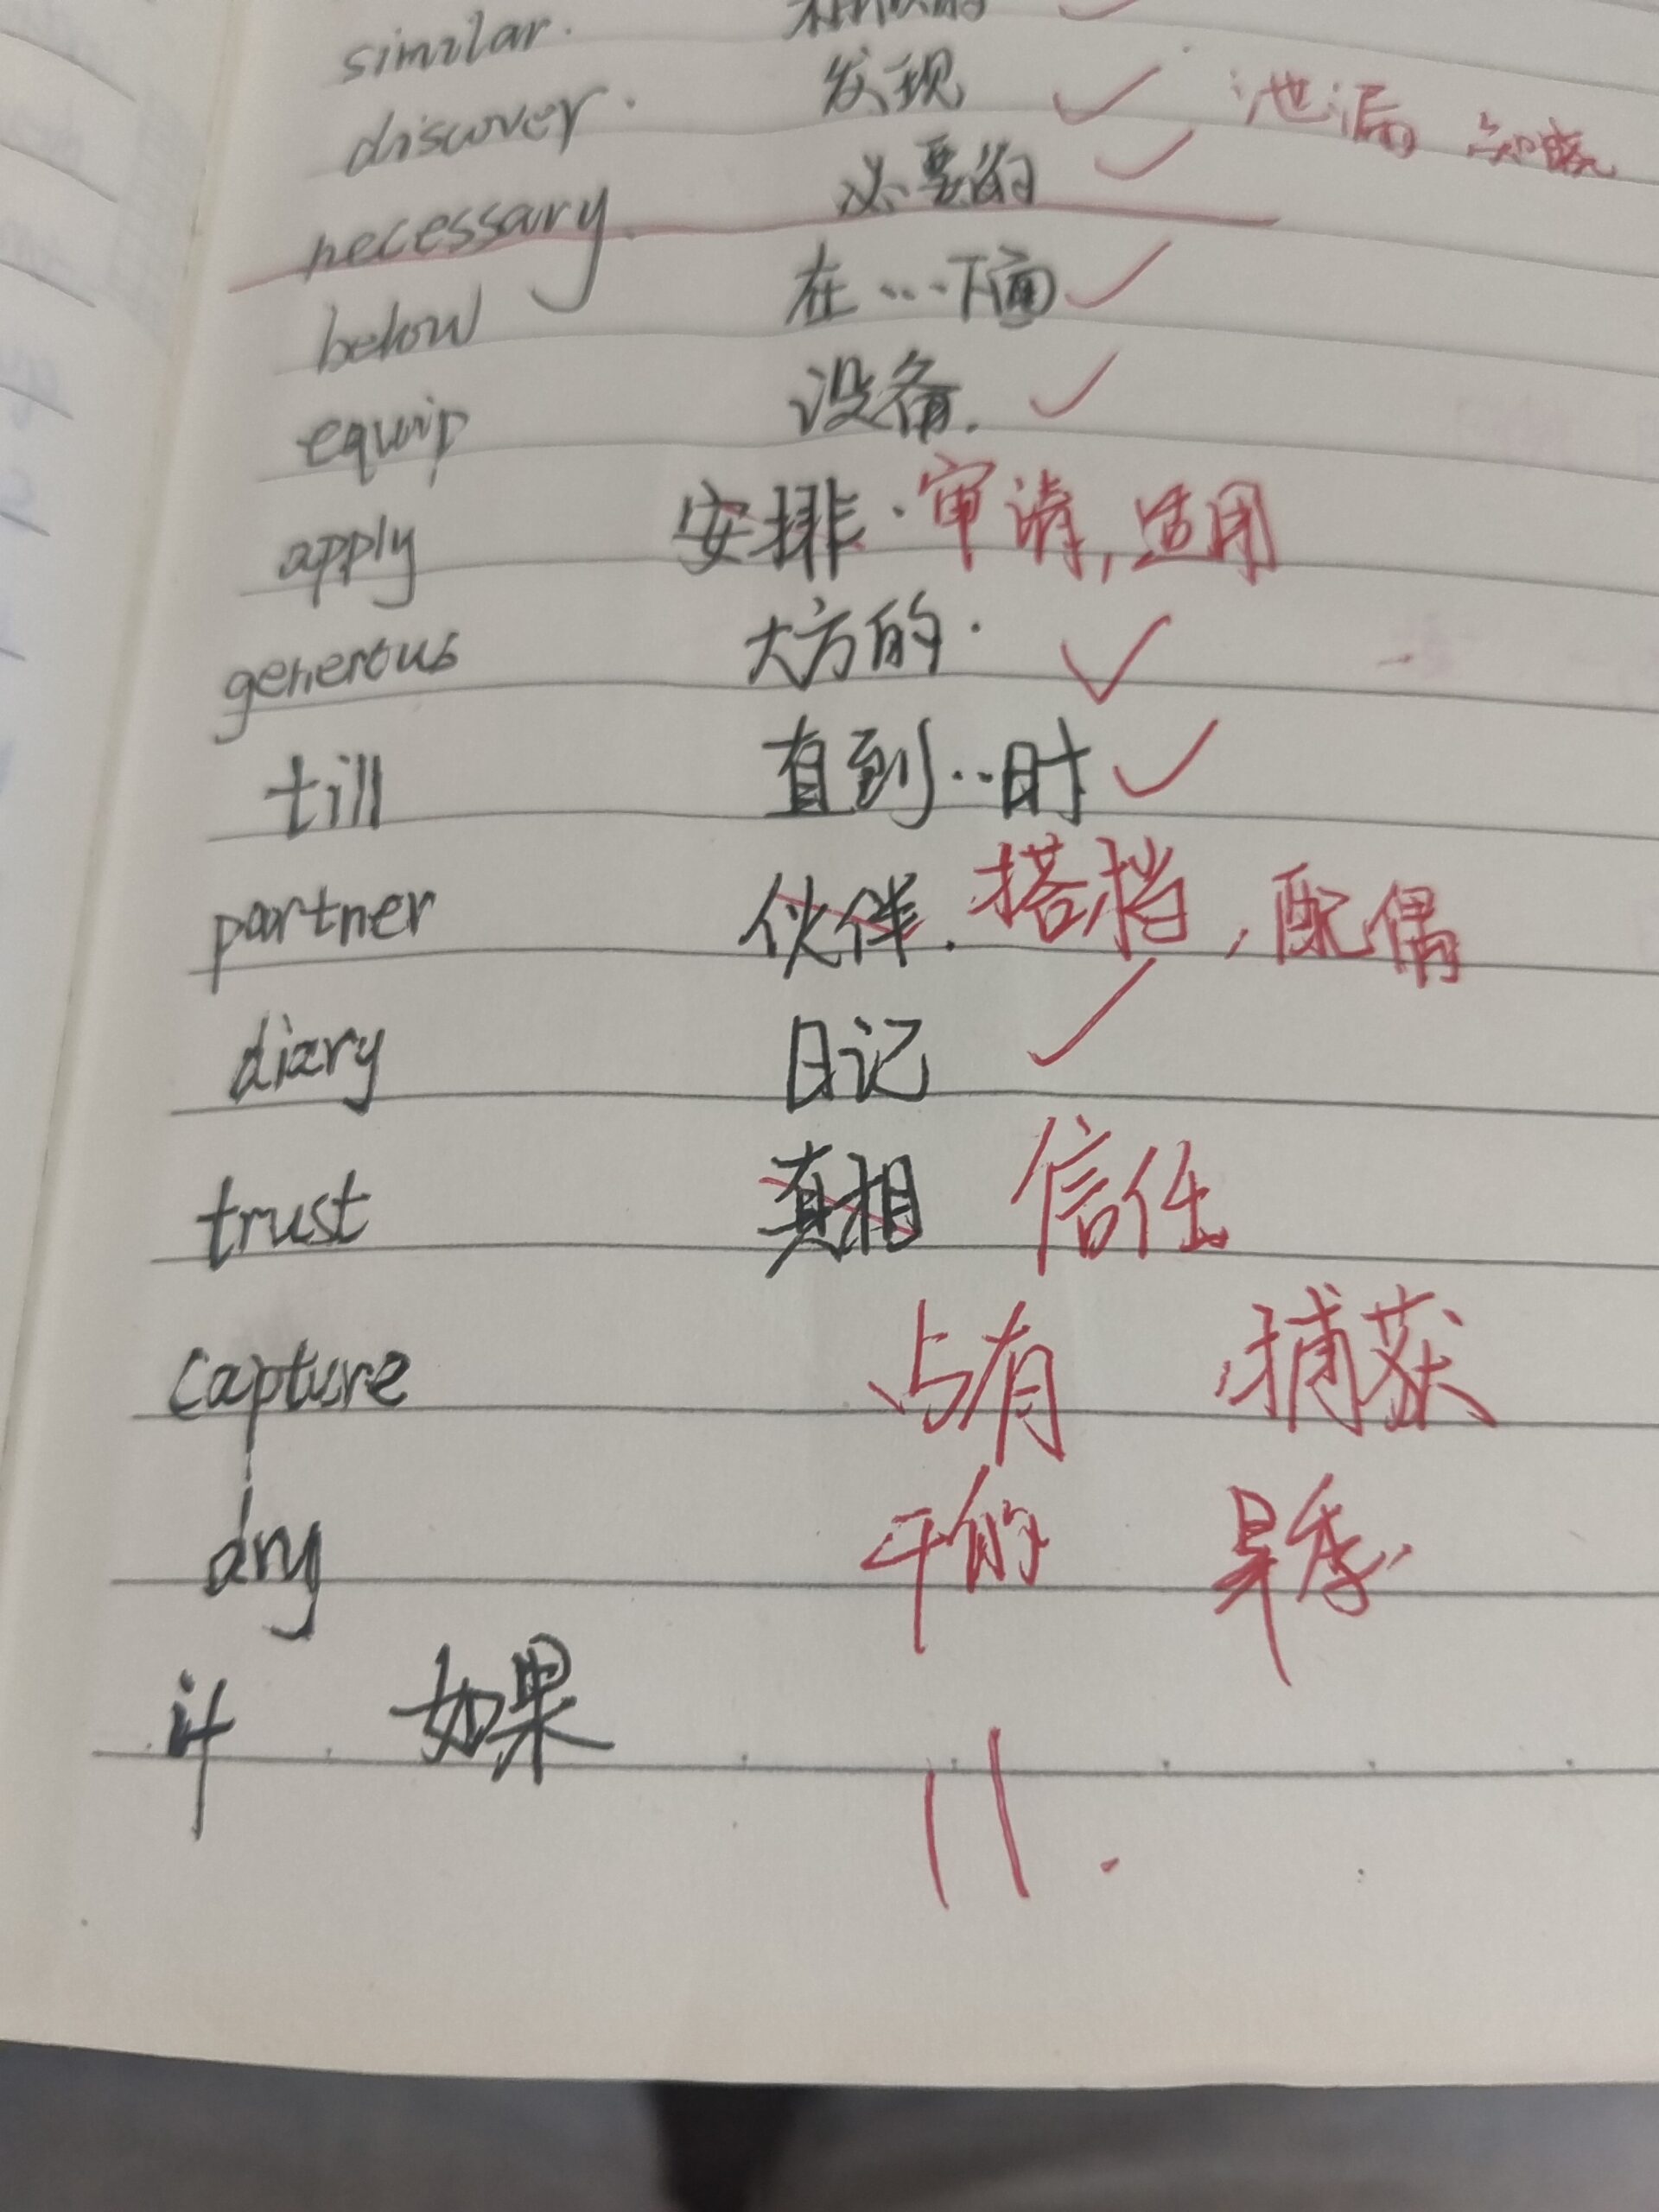 similar. 相似的
discover. 发现 泄漏 知晓
necessary. 必要的
below 在…下面
equip 设备.
apply 安排. 审请, 适用
generous 大方的.
till 直到…时
partner 伙伴. 搭档, 配偶
diary 日记
trust 真相 信任
capture 占有 捕获
dry 干的 旱季
if 如果
11.